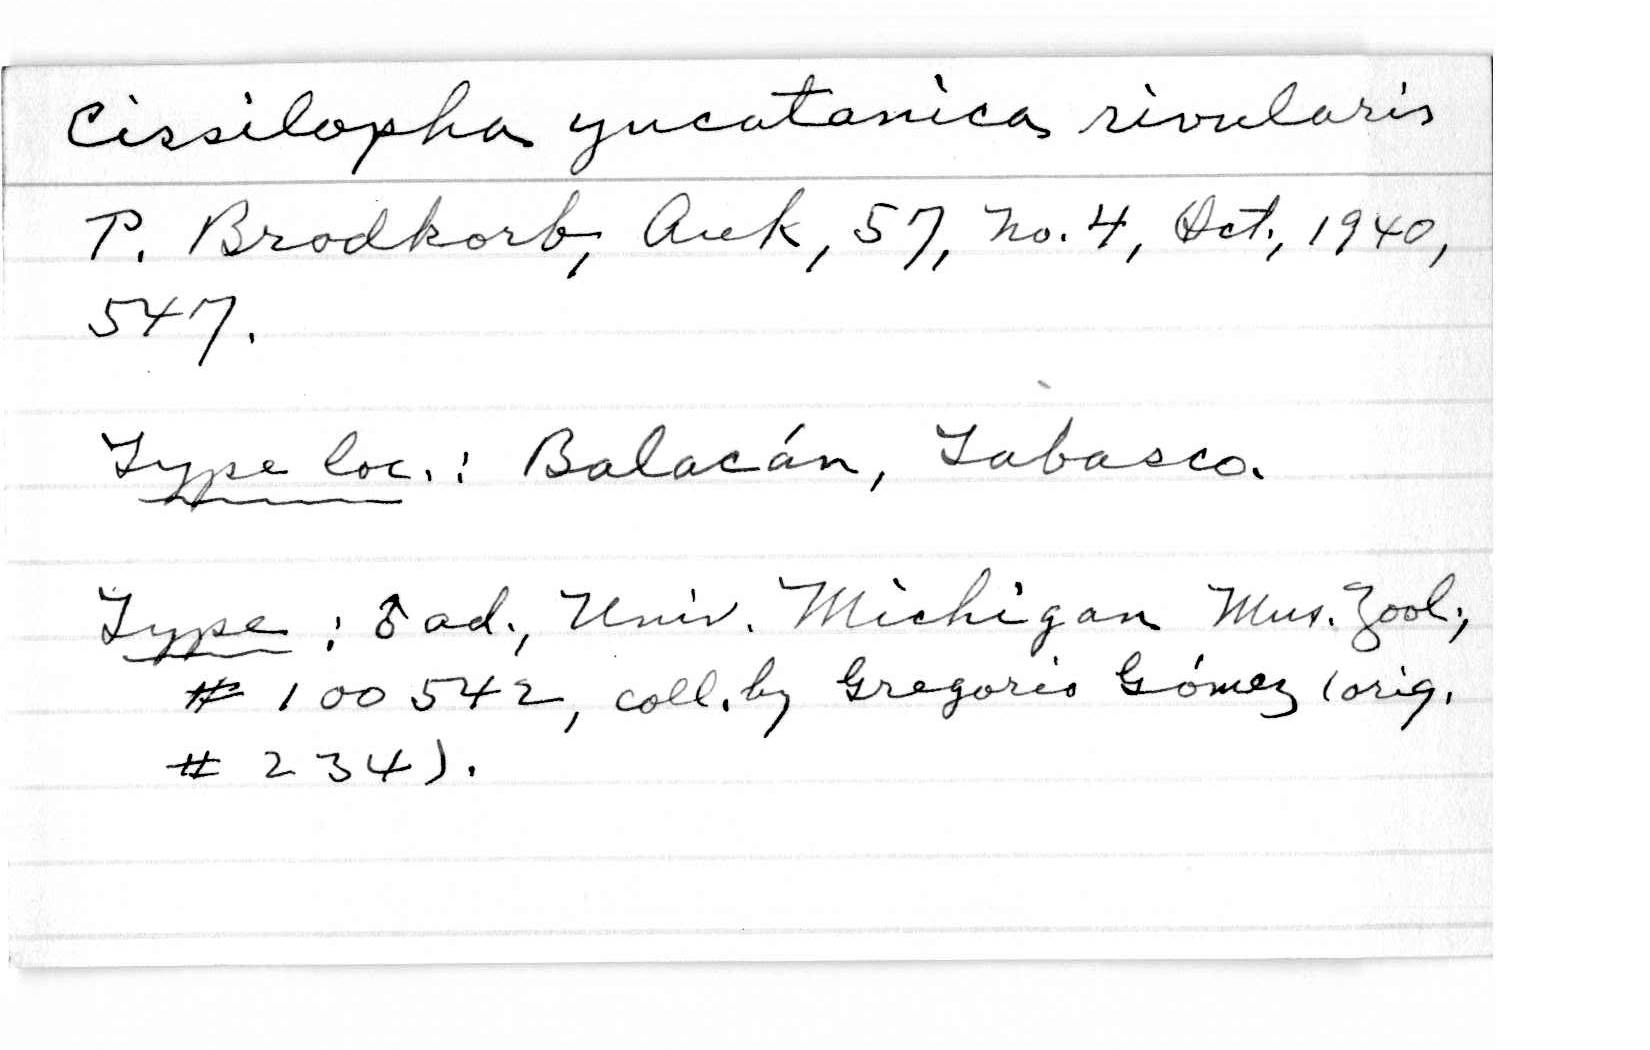 Cissilopha yucatanica rivularis
P. Brodkorb, Auk, 57, No. 4, Oct., 1940,
547.
Type loc.: Balacán, Tabasco.
Type: ♂ ad., Univ. Michigan Mus. Zool.,
# 100542, coll. by Gregorio Gómez (orig.
# 234).